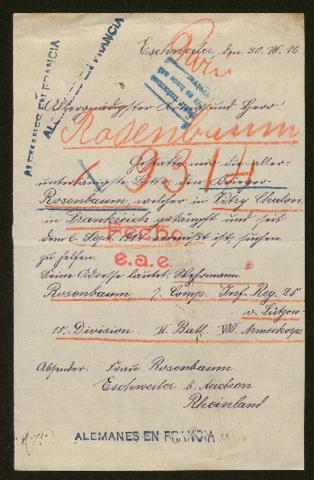 ALEMANES EN FRANCIA
ALEMANES EN FRANCIA
Eschweiler, den 20. VI. 16
Paris
Allergnädigster König und Herr!
Rosenbaum
9314
Gestatten sie die aller-
untertänigste Bitte den Krieger
Rosenbaum, welcher in Vitry Chalon
in Frankreich gekämpft und seit
dem 6. Sept. 1914 vermißt ist, suchen
zu helfen.
Fecho
e.a.e.
Seine Adresse lautet:
Rosenbaum, 7. Comp. Inf. Reg. 25
v. Lützow
15. Division. II Batl. VIII. Armeekorps
Absender: Frau Rosenbaum
Eschweiler b. Aachen
Rheinland
ALEMANES EN FRANCIA